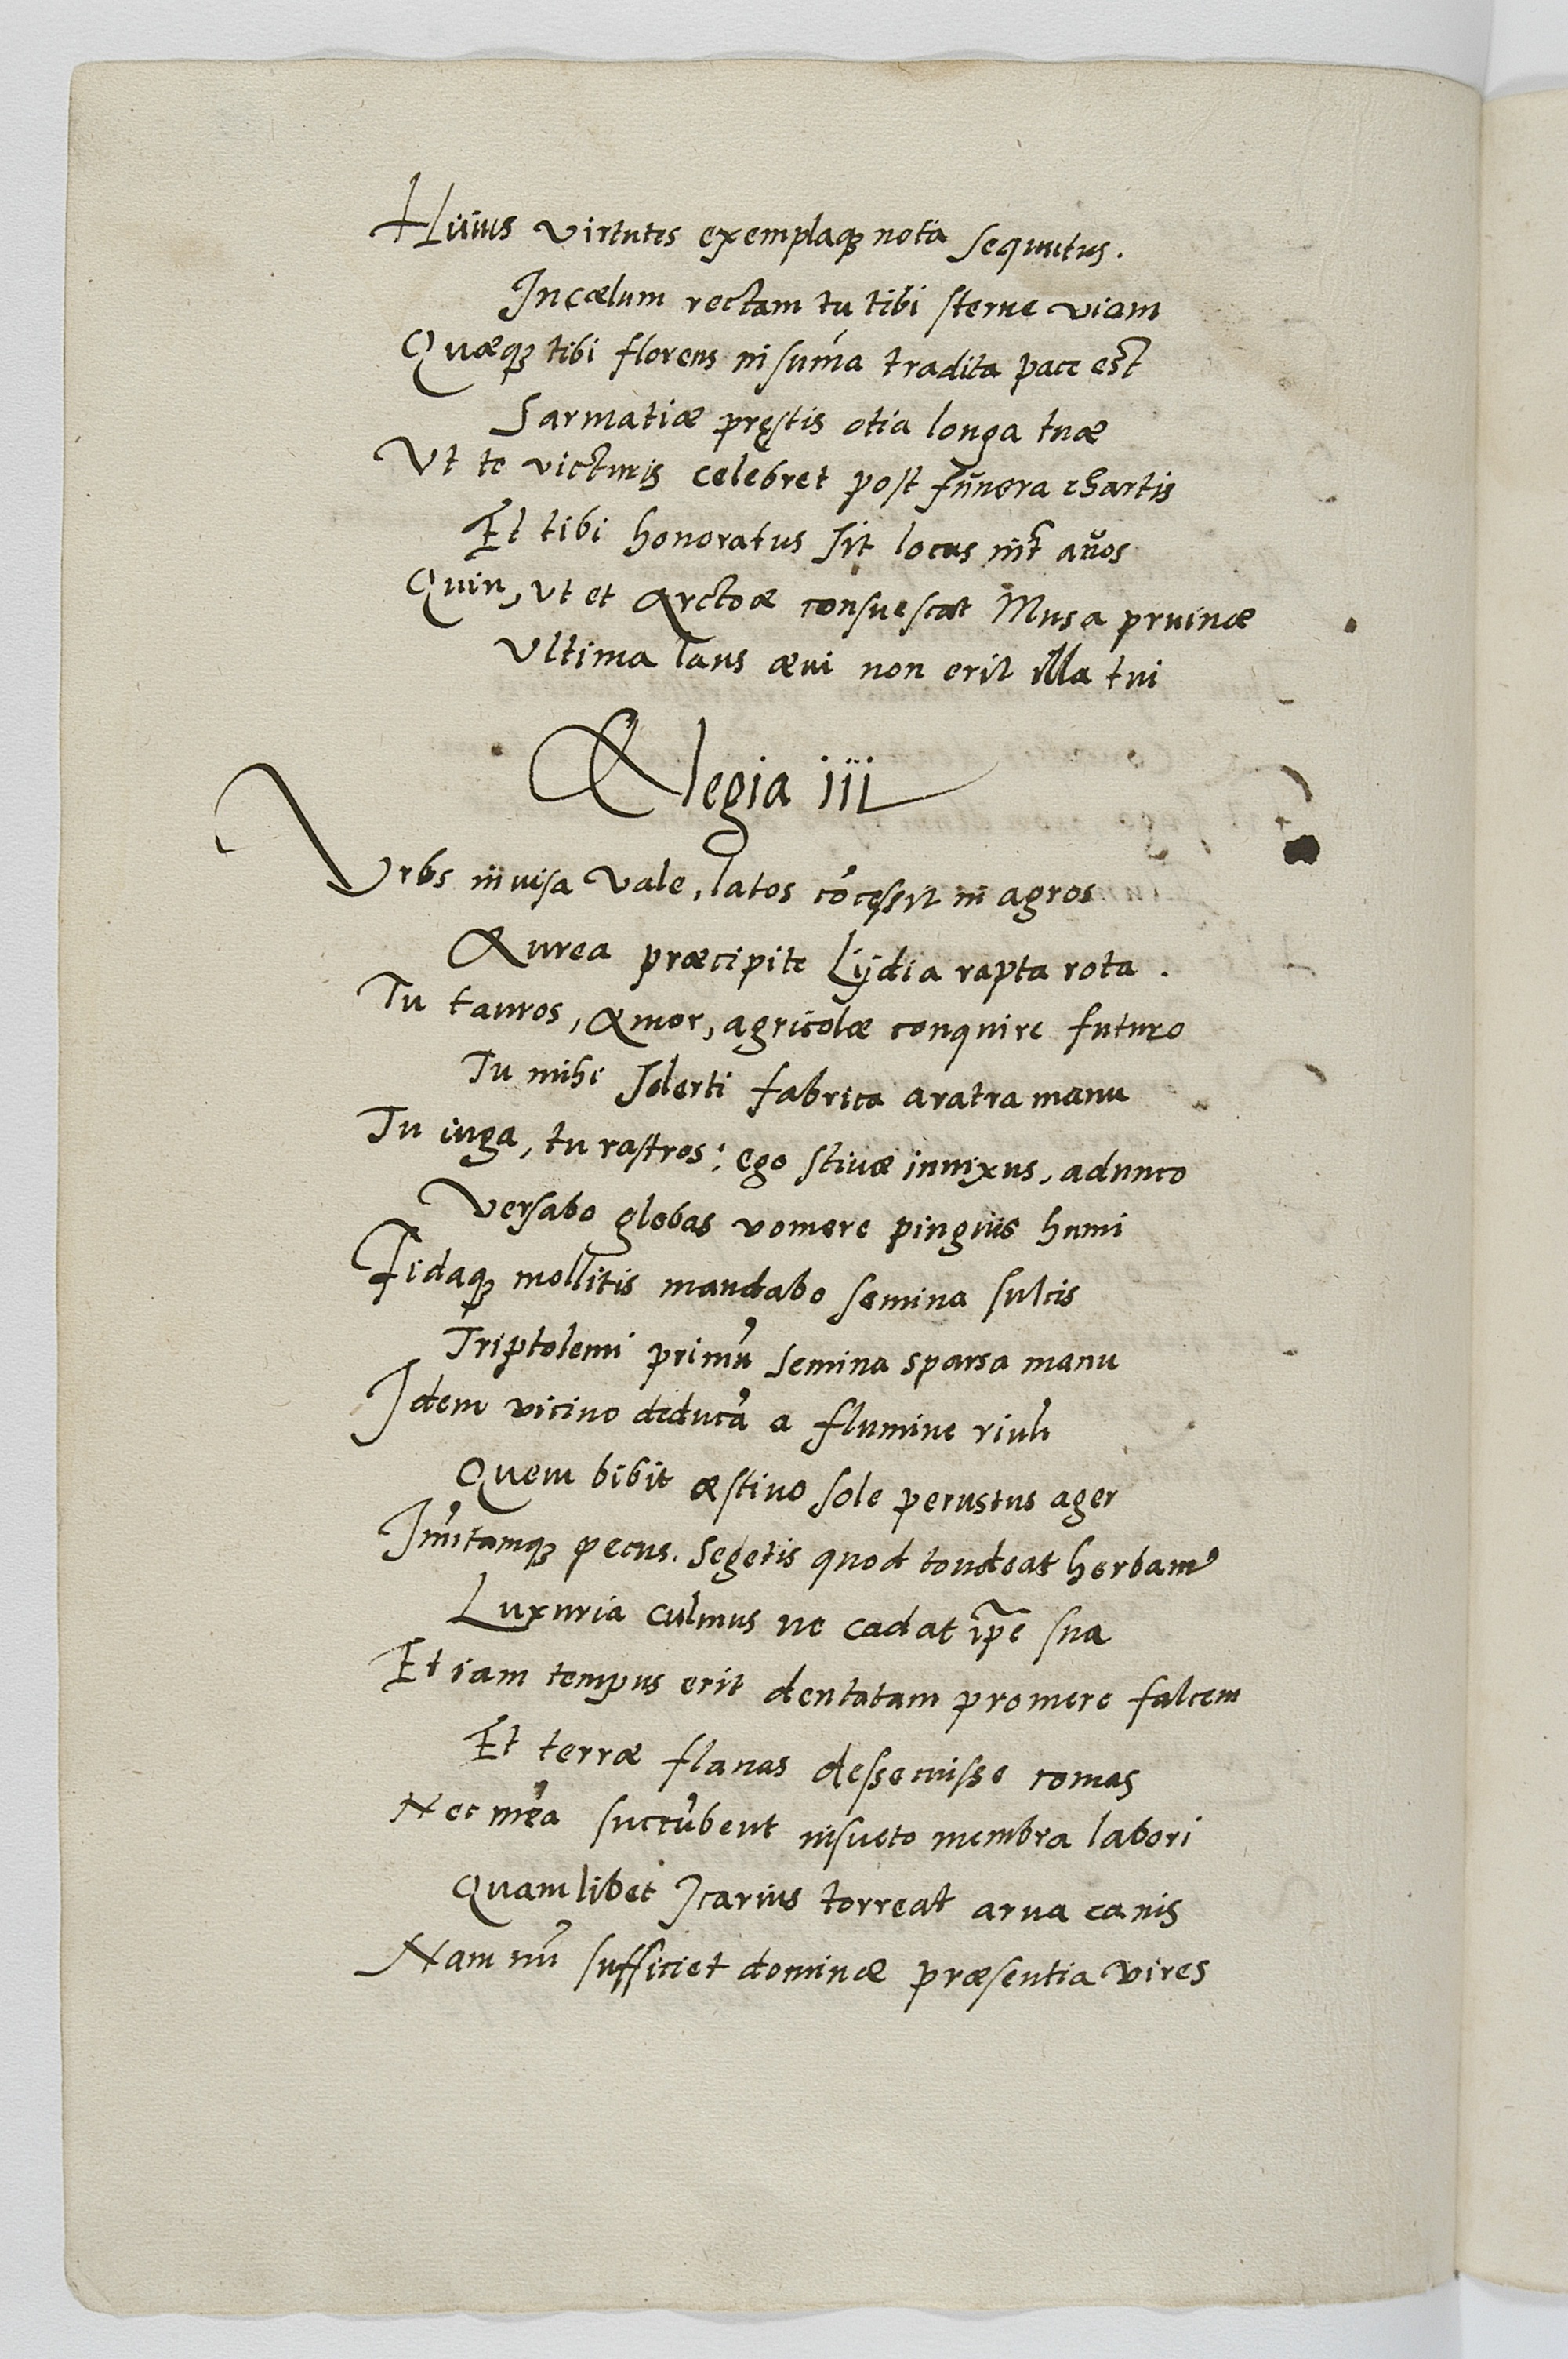 Huius virtutes exemplaq₃ nota sequutus.
In cælum rectam tu tibi sterne viam
Quæq₃ tibi florens in sum̄a tradita pace est
Sarmatiæ pręstis otia longa tuæ
Vt te victuris celebret post funera chartis
Et tibi honoratus sit locus int̃ auos
Quin, vt et Arctoæ consuescat Musa pruinæ
Vltima laus æui non erit illa tui
Elegia iii
Vrbs inuisa vale, latos cõcęssit in agros
Aurea præcipite Lydia rapta rota.
Tu tauros, Amor, agricolæ conquire futuro
Tu mihi solerti fabrica aratra manu
Tu iuga, tu rastros: ego stiuæ innixus, adunco
Versabo glebas vomere pinguis humi
Fidaq₃ mollitis mandabo semina sulcis
Triptolemi primũ semina sparsa manu
Idem vicino deducã a flumine riuũ
Quem bibit æstiuo sole perustus ager
Im̃itamq₃ pecus. Segetis quod tondeat herbam
Luxuria culmus ne cadat ip̃e sua
Et iam tempus erit dentatam promere falcem
Et terræ flauas dessecuisse comas
Nec mea succũbent insueto membra labori
Quamlibet Icarius torreat arua canis
Nam mĩ sufficiet dominæ præsentia vires